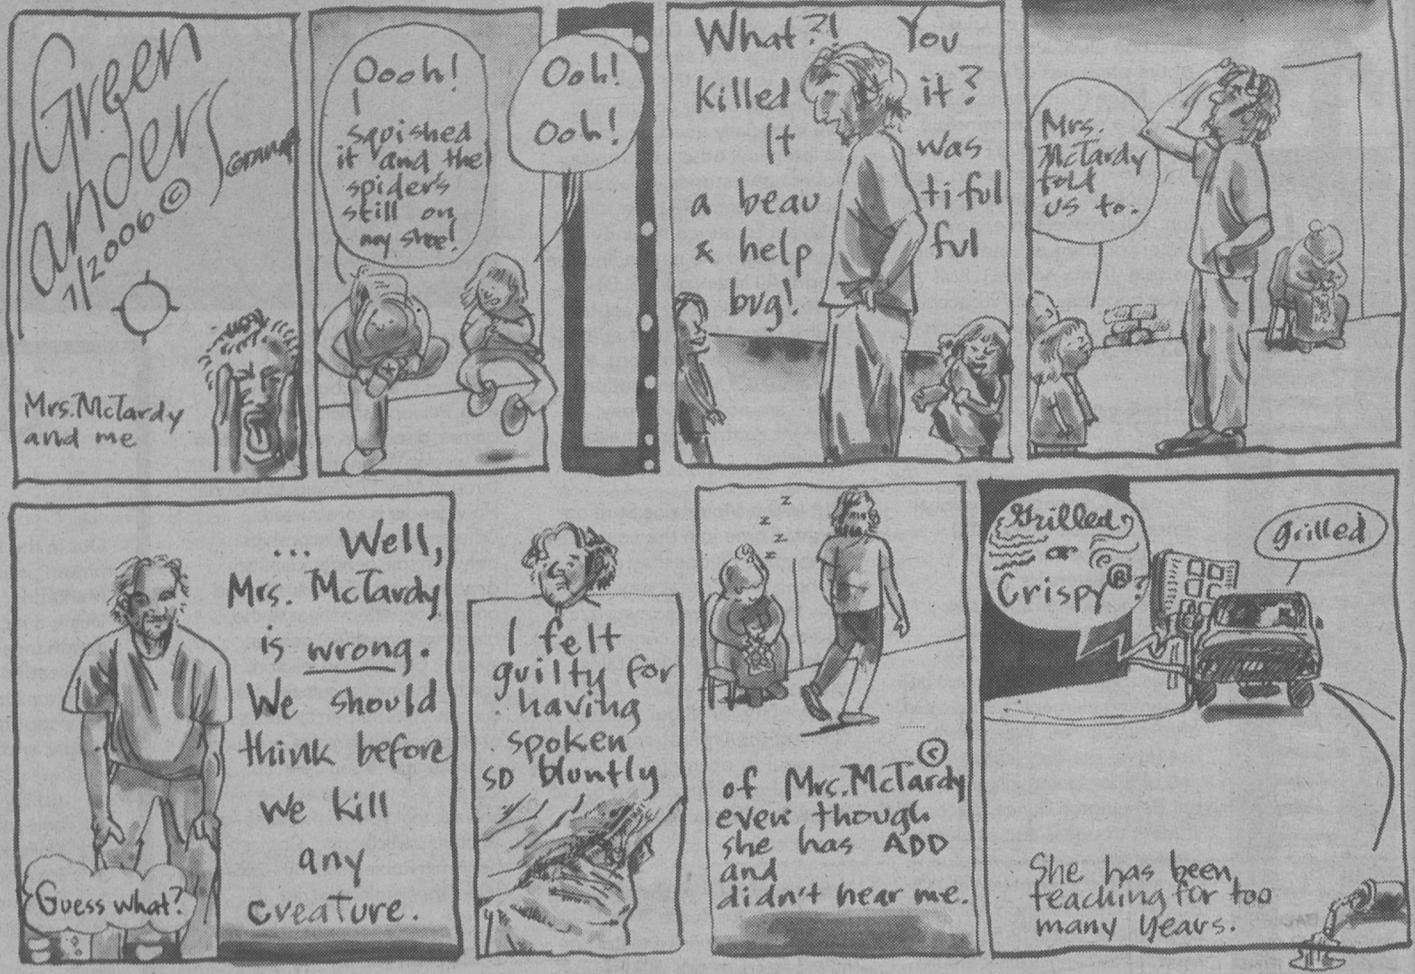 Green
anders
1/2006 ©
Mrs. McTardy
and me
Oooh!
I
squished
it and the
spider's
still on
my shoe!
Ooh!
Ooh!
What?! You
killed it?
It was
a beautiful
& helpful
bug!
Mrs.
McTardy
told
us to.
... Well,
Mrs. McTardy
is wrong.
We should
think before
we kill
any
creature.
Guess what?
I felt
guilty for
having
spoken
so bluntly
z
z
z
z
©
of Mrs. McTardy
even though
she has ADD
and
didn't hear me.
Grilled
or
Crispy®?
grilled
She has been
teaching for too
many years.